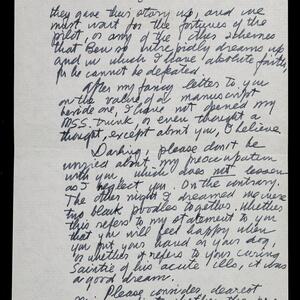 they gave this story up, and we
must wait for the fortunes of the
pilot, or any of the other schemes
that Ben so intrepidly dreams up
and in which I have absolute faith,
for he cannot be defeated.
After my fancy letter to you
on the value of a manuscript
beside one, I have not opened my
MSS. trunk, or even thought a
thought, except about you, I believe
Darling, please don't be
worried about my preoccupation
with you, which does not lessen
as I neglect you. On the contrary.
The other night I dreamed we were
two black poodles together. Whether
this refers to my statement to you
that you will feel happy when
you put your hand on your dog,
or whether it refers to your curing
Saintie of his acute ills, it was
a good dream.
Please consider, dearest